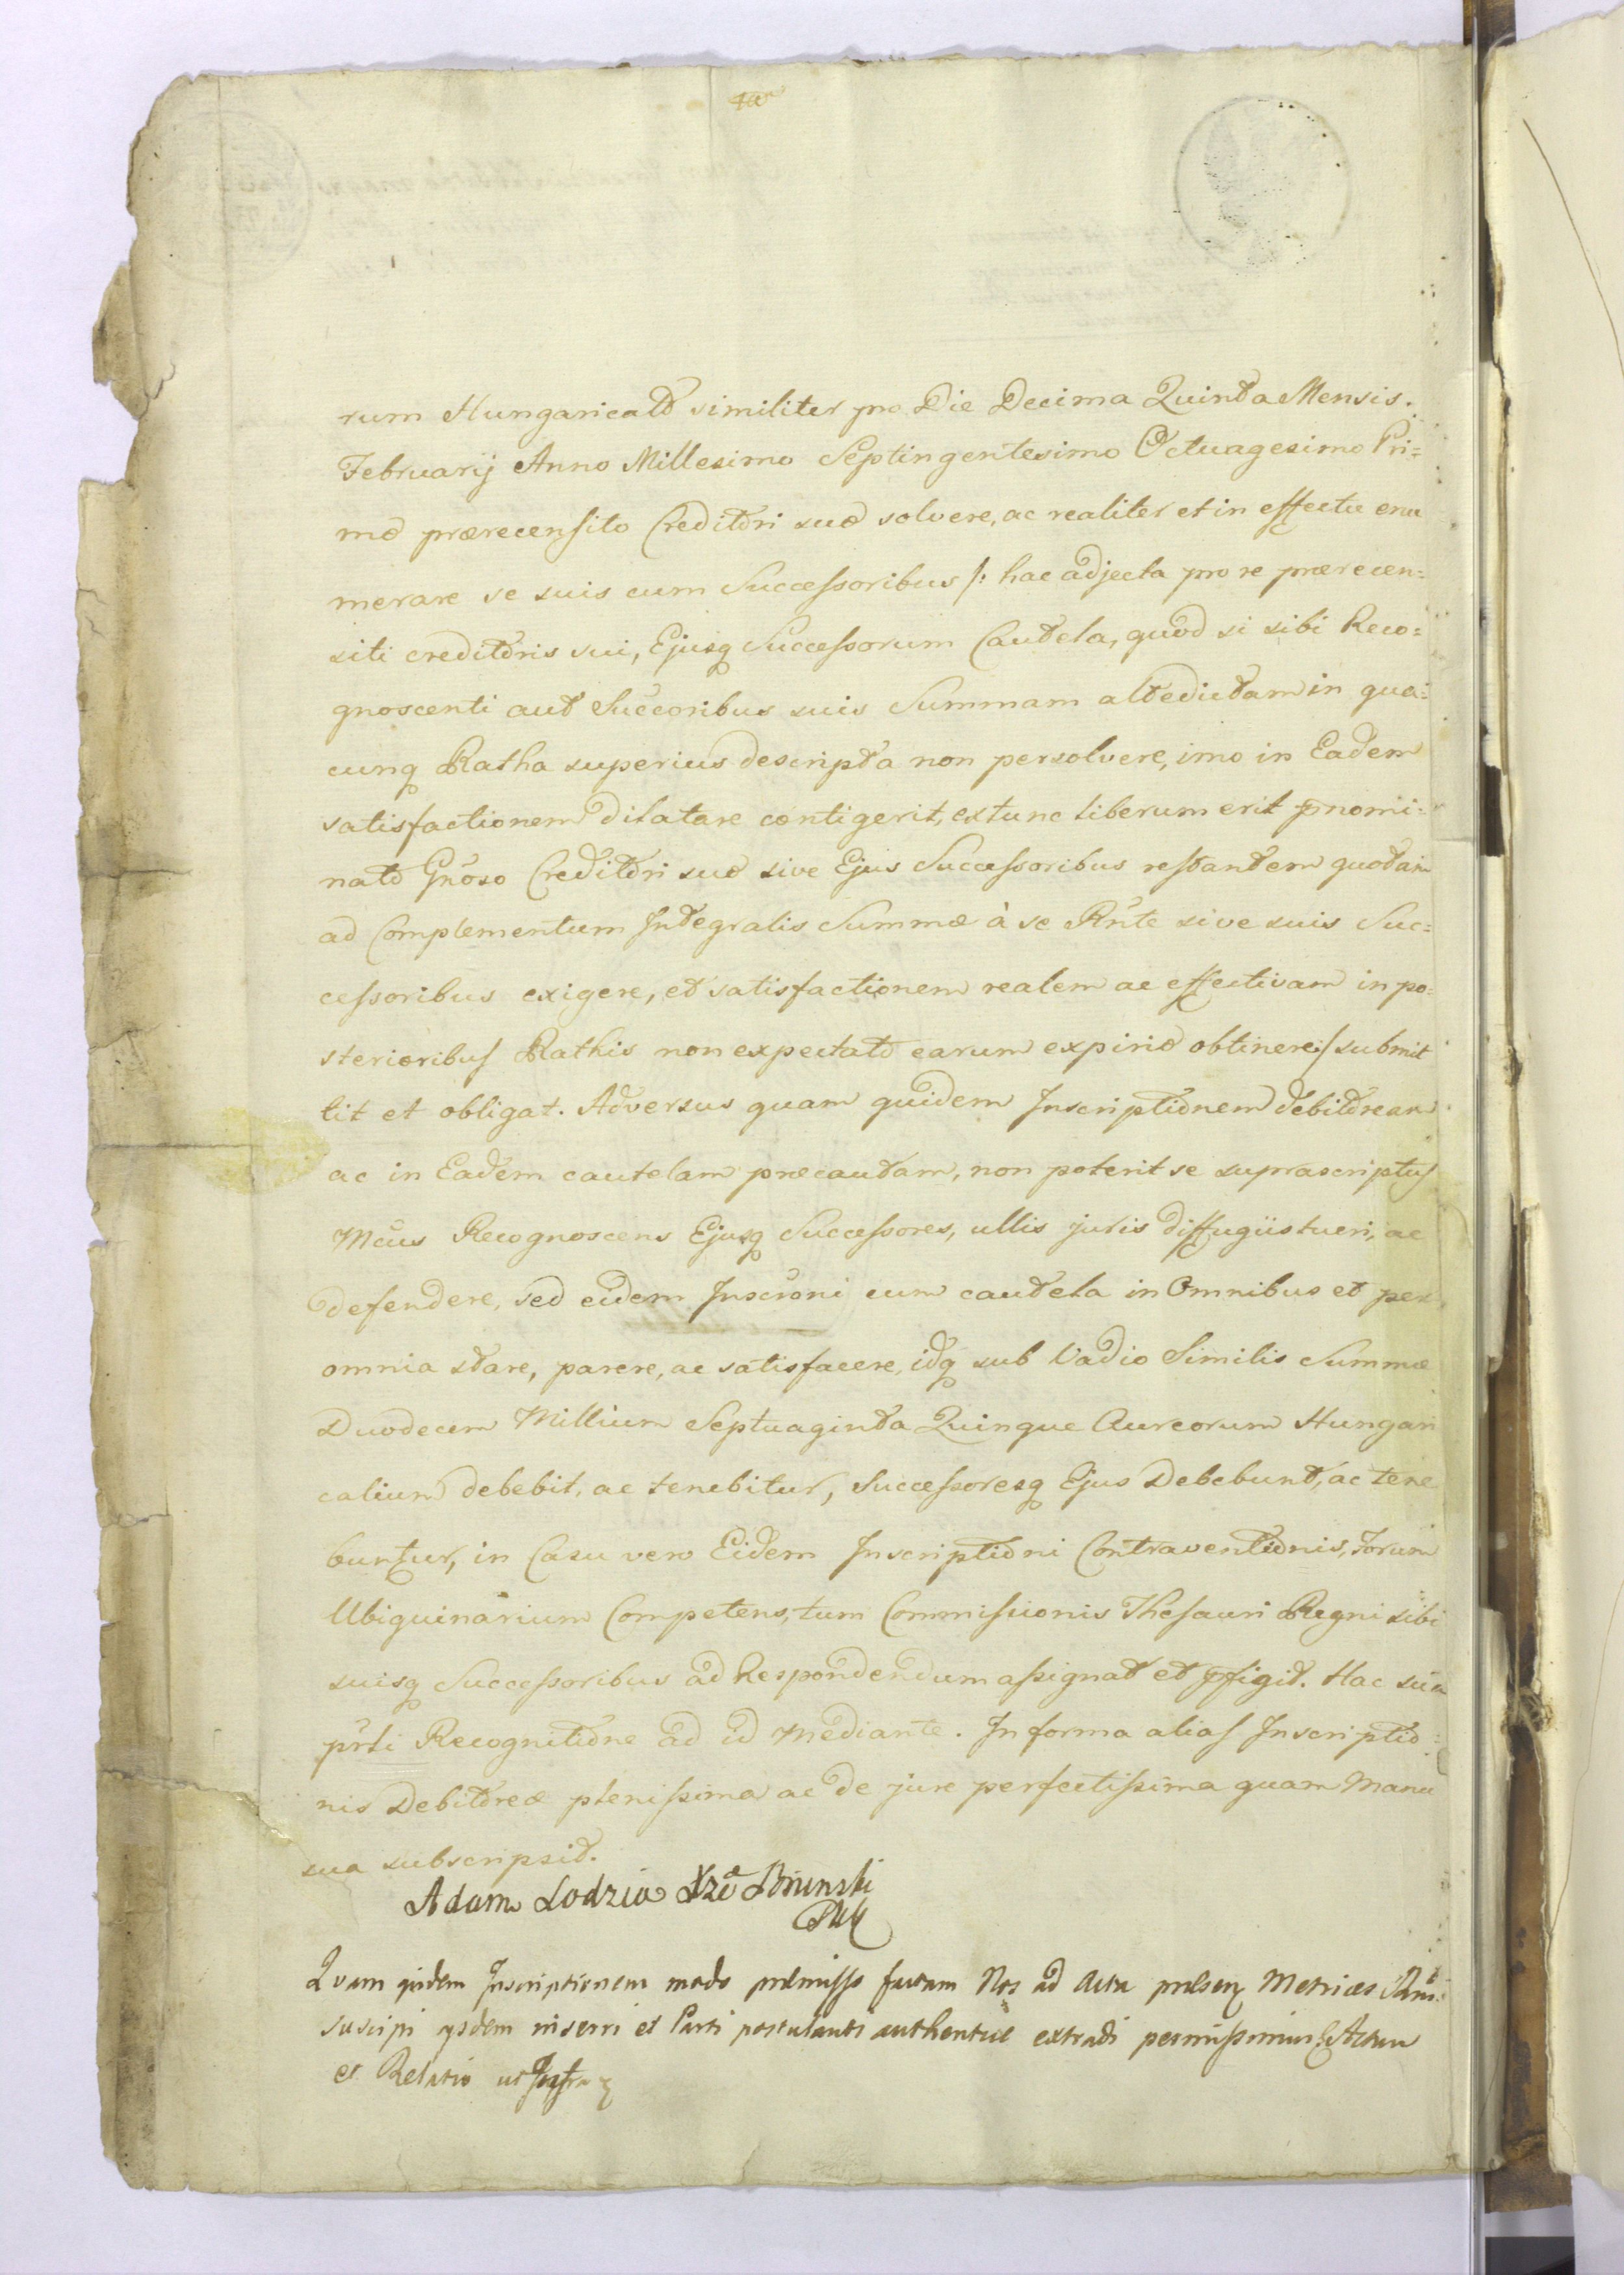 rum Hungaricalium similiter pro Die Decima Quinta Mensis.
Februarij Anno Millesimo Septingentesimo Octuagesimo Pri=
mo prærecensito Creditori suo solvere, ac realiter et in effectu enu
merare se suis cum Successoribus /: hac adjecta pro re prærecen=
siti creditoris sui, Ejusq Successorum Cautela, quod si sibi Reco=
gnoscenti aut Succoribus suis Summam altedictam in qua=
cunq Ratha superius descripta non persolvere, imo in Eadem
satisfactionem dilatare contigerit, extunc liberum erit pnomi=
nato Gnoso Creditori suo sive Ejus Successoribus restantem quotam
ad Complementum Integralis Summæ à se Rnte sive suis Suc=
cessoribus exigere, et satisfactionem realem ac effectivam in po=
sterioribus Rathis non expectato earum expirio obtinere :/ submit
tit et obligat. Adversus quam quidem Inscriptionem debitoream
ac in Eadem cautelam præcautam, non poterit se suprascriptus
Mcus Recognoscens Ejusq Successores, ullis juris diffugiis tueri, ac
defendere, sed eidem Inscroni cum cautela in Omnibus et per
omnia stare, parere, ac satisfacere, idq sub Vadio Similis Summæ
Duodecem Millium Septuaginta Quinque Aureorum Hungari
calium debebit, ac tenebitur, Successoresq Ejus Debebunt, ac tene
buntur, in Casu vero Eidem Inscriptioni Contraventionis, Forum
Ubiquinarium Competens, tum Commissionis Thesauri Regni sibi
suisq Successoribus ad Respondendum assignat et pfigit. Hac sua
prti Recognitione ad id mediante. In forma alias Inscriptio=
nis Debitoreæ plenissima ac de jure perfectissima quam Manu
sua subscripsit.
Adam Lodzia Brinski
Quam quidem Inscriptionem modo præmisso factam Nos ad Acta præsen Metrices
suscipi ejsdem inserri et Parti postulanti authentice extradi permissimus Actum
et Relatio ut